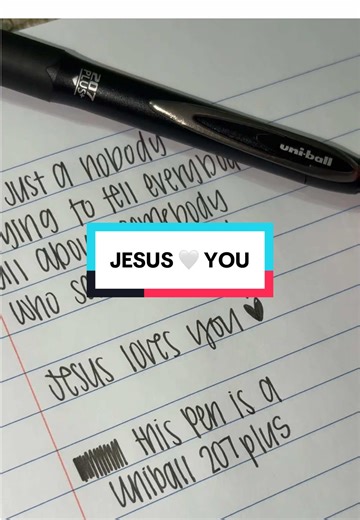 207
PLUS+
uni-ball
just a nobody
to tell everybod
all abou
who s
JESUS 🤍 YOU
Jesus loves you ♥
this pen is a
uniball 207 plus